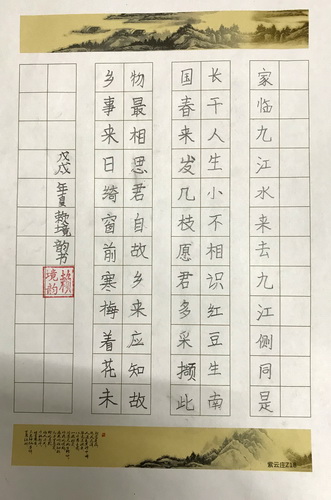 家临九江水来去九江侧同是
长干人生小不相识红豆生南
国春来发几枝愿君多采撷此
物最相思君自故乡来应知故
乡事来日绮窗前寒梅着花未
戊戌年夏境韵书
境韵
紫云庄Z18